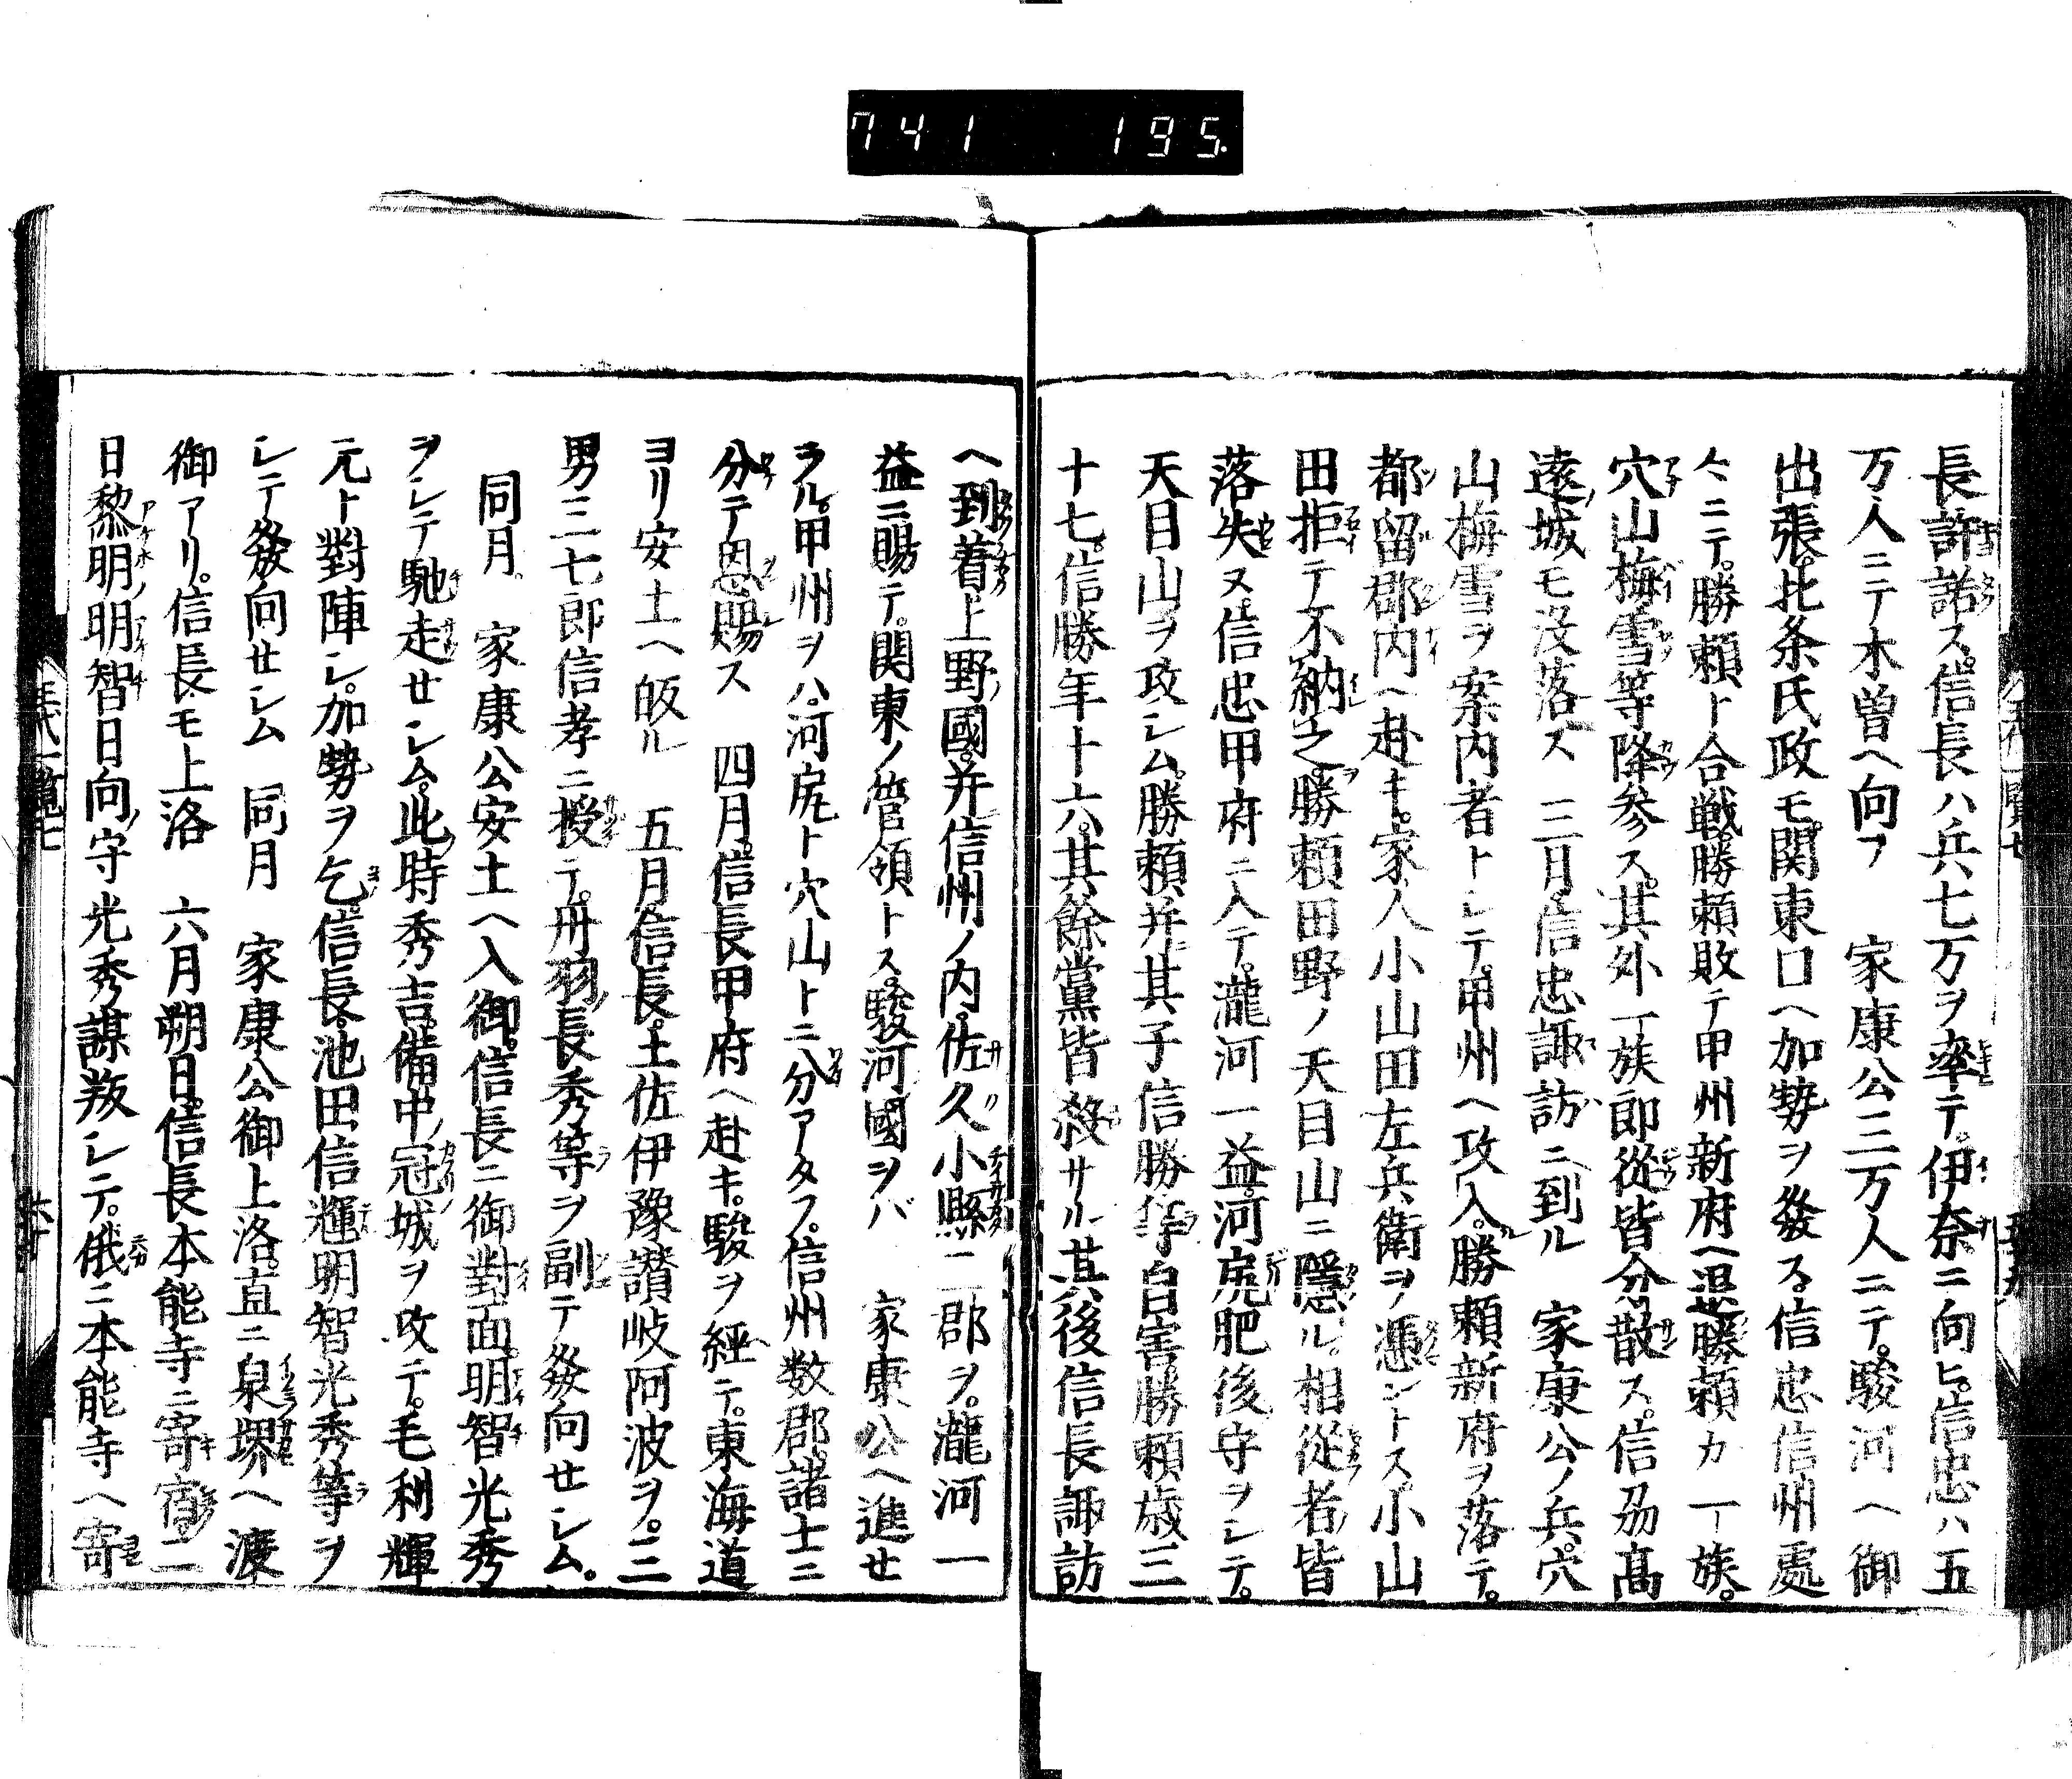 741 195
長許諾ス。信長ハ兵七万ヲ率テ。伊奈ニ向ヒ。信忠ハ五
万人ニテ木曽ヘ向フ 家康公三万人ニテ。駿河ヘ御
出張。北条氏政モ関東口ヘ加勢ヲ發ス。信忠信州處
々ニテ。勝頼ト合戦。勝頼敗テ甲州新府ヘ退。勝頼カ一族。
穴山梅雪等降参ス。其外一族郎從皆分散ス。信刕髙
遠城モ没落ス 三月。信忠諏訪ニ到ル 家康公ノ兵。穴
山梅雪ヲ案内者トシテ。甲州ヘ攻入。勝頼新府ヲ落テ。
都留郡内ヘ赴キ。家人小山田左兵衛ヲ憑ントス。小山
田拒テ不納之。勝頼田野ノ天目山ニ隱ル。相從者皆
落失ヌ。信忠甲府ニ入テ。瀧河一益。河尻肥後守ヲシテ。
天目山ヲ攻シム。勝頼并其子信勝等自害。勝頼歳三
十七。信勝年十六。其餘黨皆殺サル。其後信長諏訪
ヘ到着。上野國。并信州ノ内。佐久小縣二郡ヲ。瀧河一
益ニ賜テ。関東ノ管領トス。駿河國ヲバ 家康公ヘ進セ
ラル。甲州ヲハ。河尻ト穴山トニ分アタフ。信州数郡。諸士ニ
分テ恩賜ス 四月。信長甲府ヘ赴キ。駿ヲ經テ。東海道
ヨリ安土ヘ皈ル 五月。信長。土佐伊豫讃岐阿波ヲ。三
男三七郎信孝ニ授テ。丹羽長秀等ヲ副テ發向セシム。
同月。 家康公安土ヘ入御。信長ニ御對面。明智光秀
ヲシテ馳走セシム。此時秀吉。備中冠城ヲ攻テ。毛利輝
元ト對陣シ。加勢ヲ乞。信長。池田信輝明智光秀等ヲ
シテ發向セシム 同月 家康公御上洛。直ニ泉堺ヘ渡
御アリ。信長モ上洛 六月朔日。信長本能寺ニ寄宿。二
日黎明。明智日向守光秀謀叛シテ。俄ニ本能寺ヘ寄